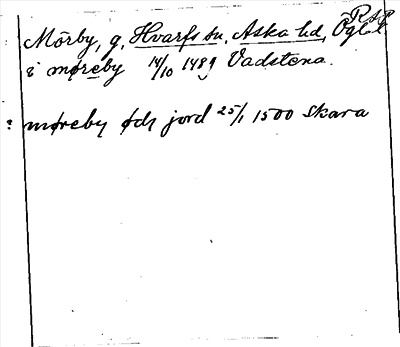 RAP
Mörby, g, Hvarfs sn, Aska hd, Ögl
i møreby 14/10 1489 Vadstena.
: møreby øch jord 25/1 1500 Skara